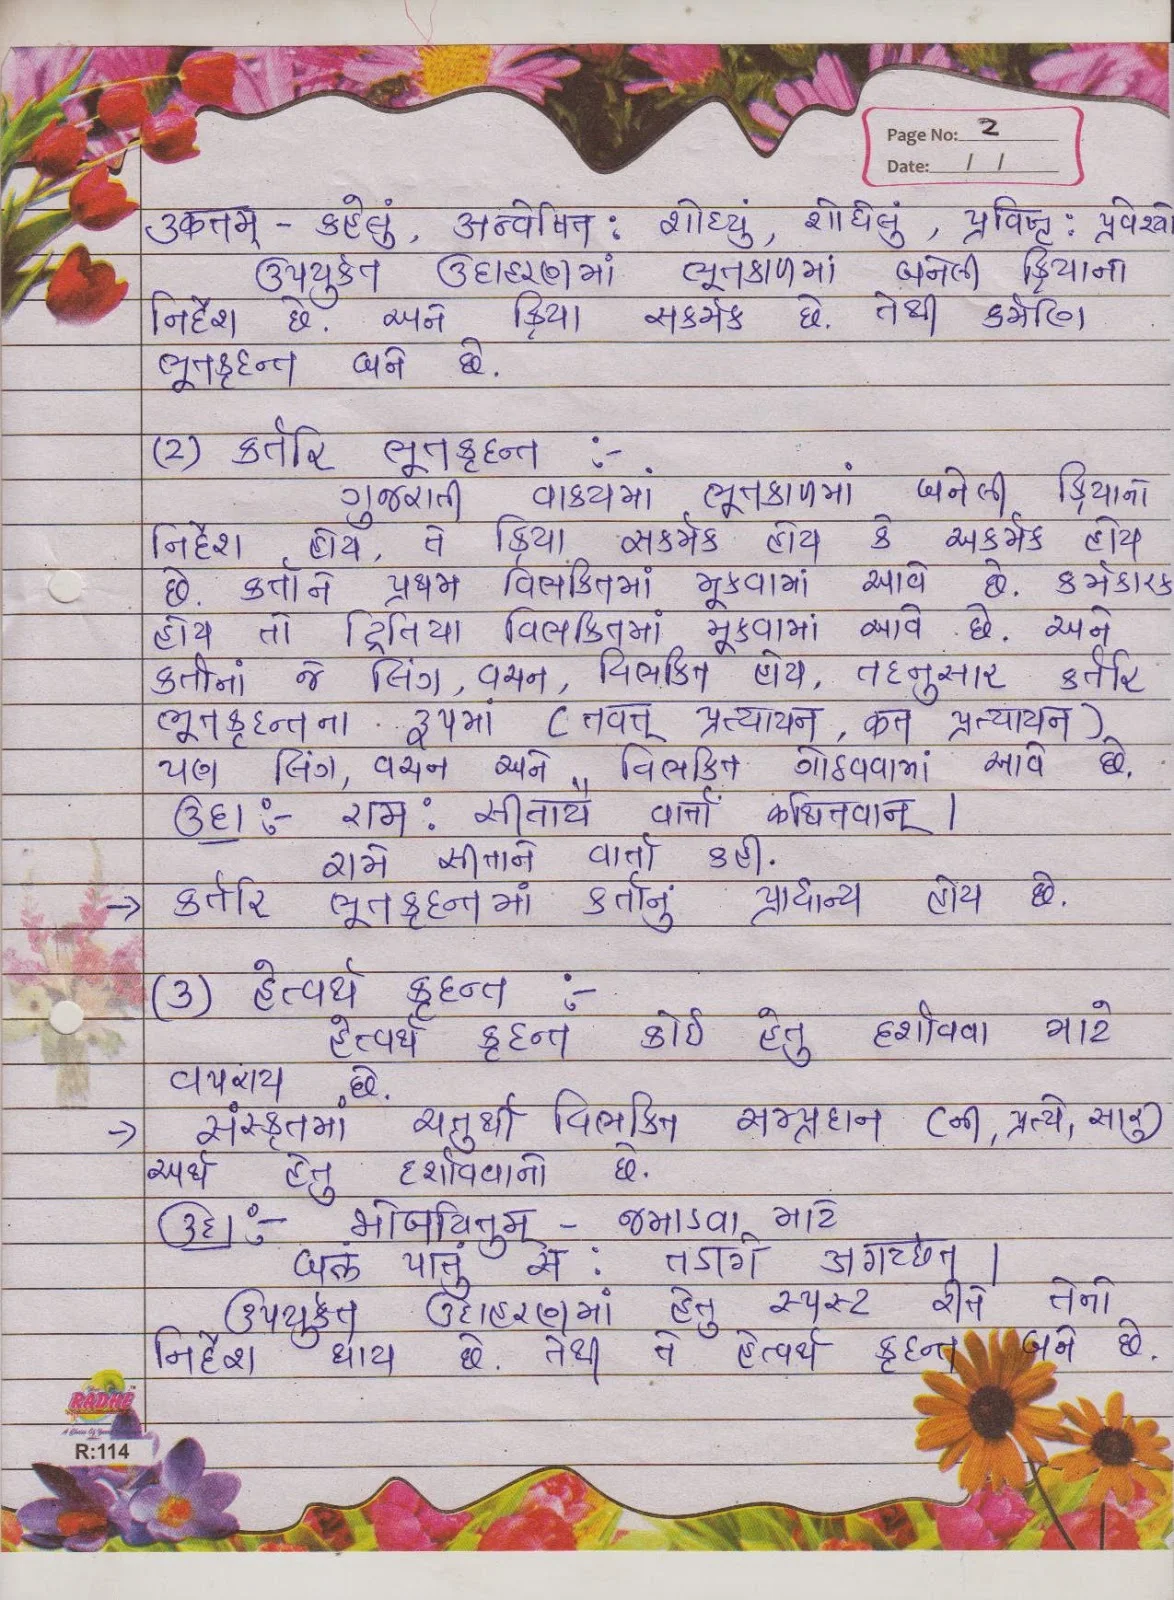 Page No: 2
Date: / /
ઉક્તમ્ - કહેલું, અન્વેષિત: શોધ્યું, શોધેલું, પ્રવિષ્ટ: પ્રવેશ્યો
ઉપર્યુક્ત ઉદાહરણમાં ભૂતકાળમાં બનેલી ક્રિયાનો
નિર્દેશ છે. અને ક્રિયા સકર્મક છે. તેથી કર્મણિ
ભૂતકૃદન્ત બને છે.
(2) કર્તરિ ભૂતકૃદન્ત :-
ગુજરાતી વાક્યમાં ભૂતકાળમાં બનેલી ક્રિયાનો
નિર્દેશ હોય, તે ક્રિયા સકર્મક હોય કે અકર્મક હોય
છે. કર્તાને પ્રથમ વિભક્તિમાં મૂકવામાં આવે છે. કર્મકારક
હોય તો દ્વિતિયા વિભક્તિમાં મૂકવામાં આવે છે. અને
કર્તાનાં જે લિંગ, વચન, વિભક્તિ હોય, તદનુસાર કર્તરિ
ભૂતકૃદન્તના રૂપમાં (તવત્ પ્રત્યાયન, કત પ્રત્યાયન)
પણ લિંગ, વચન અને વિભક્તિ ગોઠવવામાં આવે છે.
ઉદા :- રામ: સીતાયૈ વાર્તાં કથિતવાન્ |
રામે સીતાને વાર્તા કહી.
→ કર્તરિ ભૂતકૃદન્તમાં કર્તાનું પ્રાધાન્ય હોય છે.
(3) હેત્વર્થ કૃદન્ત :-
હેત્વર્થ કૃદન્ત કોઈ હેતુ દર્શાવવા માટે
વપરાય છે.
→ સંસ્કૃતમાં ચતુર્થી વિભક્તિ સમ્પ્રદાન (ની, પ્રત્યે, સારુ)
અર્થ હેતુ દર્શાવવાનો છે.
ઉદા :- ભોજયિતુમ્ - જમાડવા માટે
જલં પાતું સ: તડાગં અગચ્છત્ |
ઉપર્યુક્ત ઉદાહરણમાં હેતુ સ્પસ્ટ રીતે તેનો
નિર્દેશ થાય છે. તેથી તે હેત્વર્થ કૃદન્ત બને છે.
RADHE
R:114